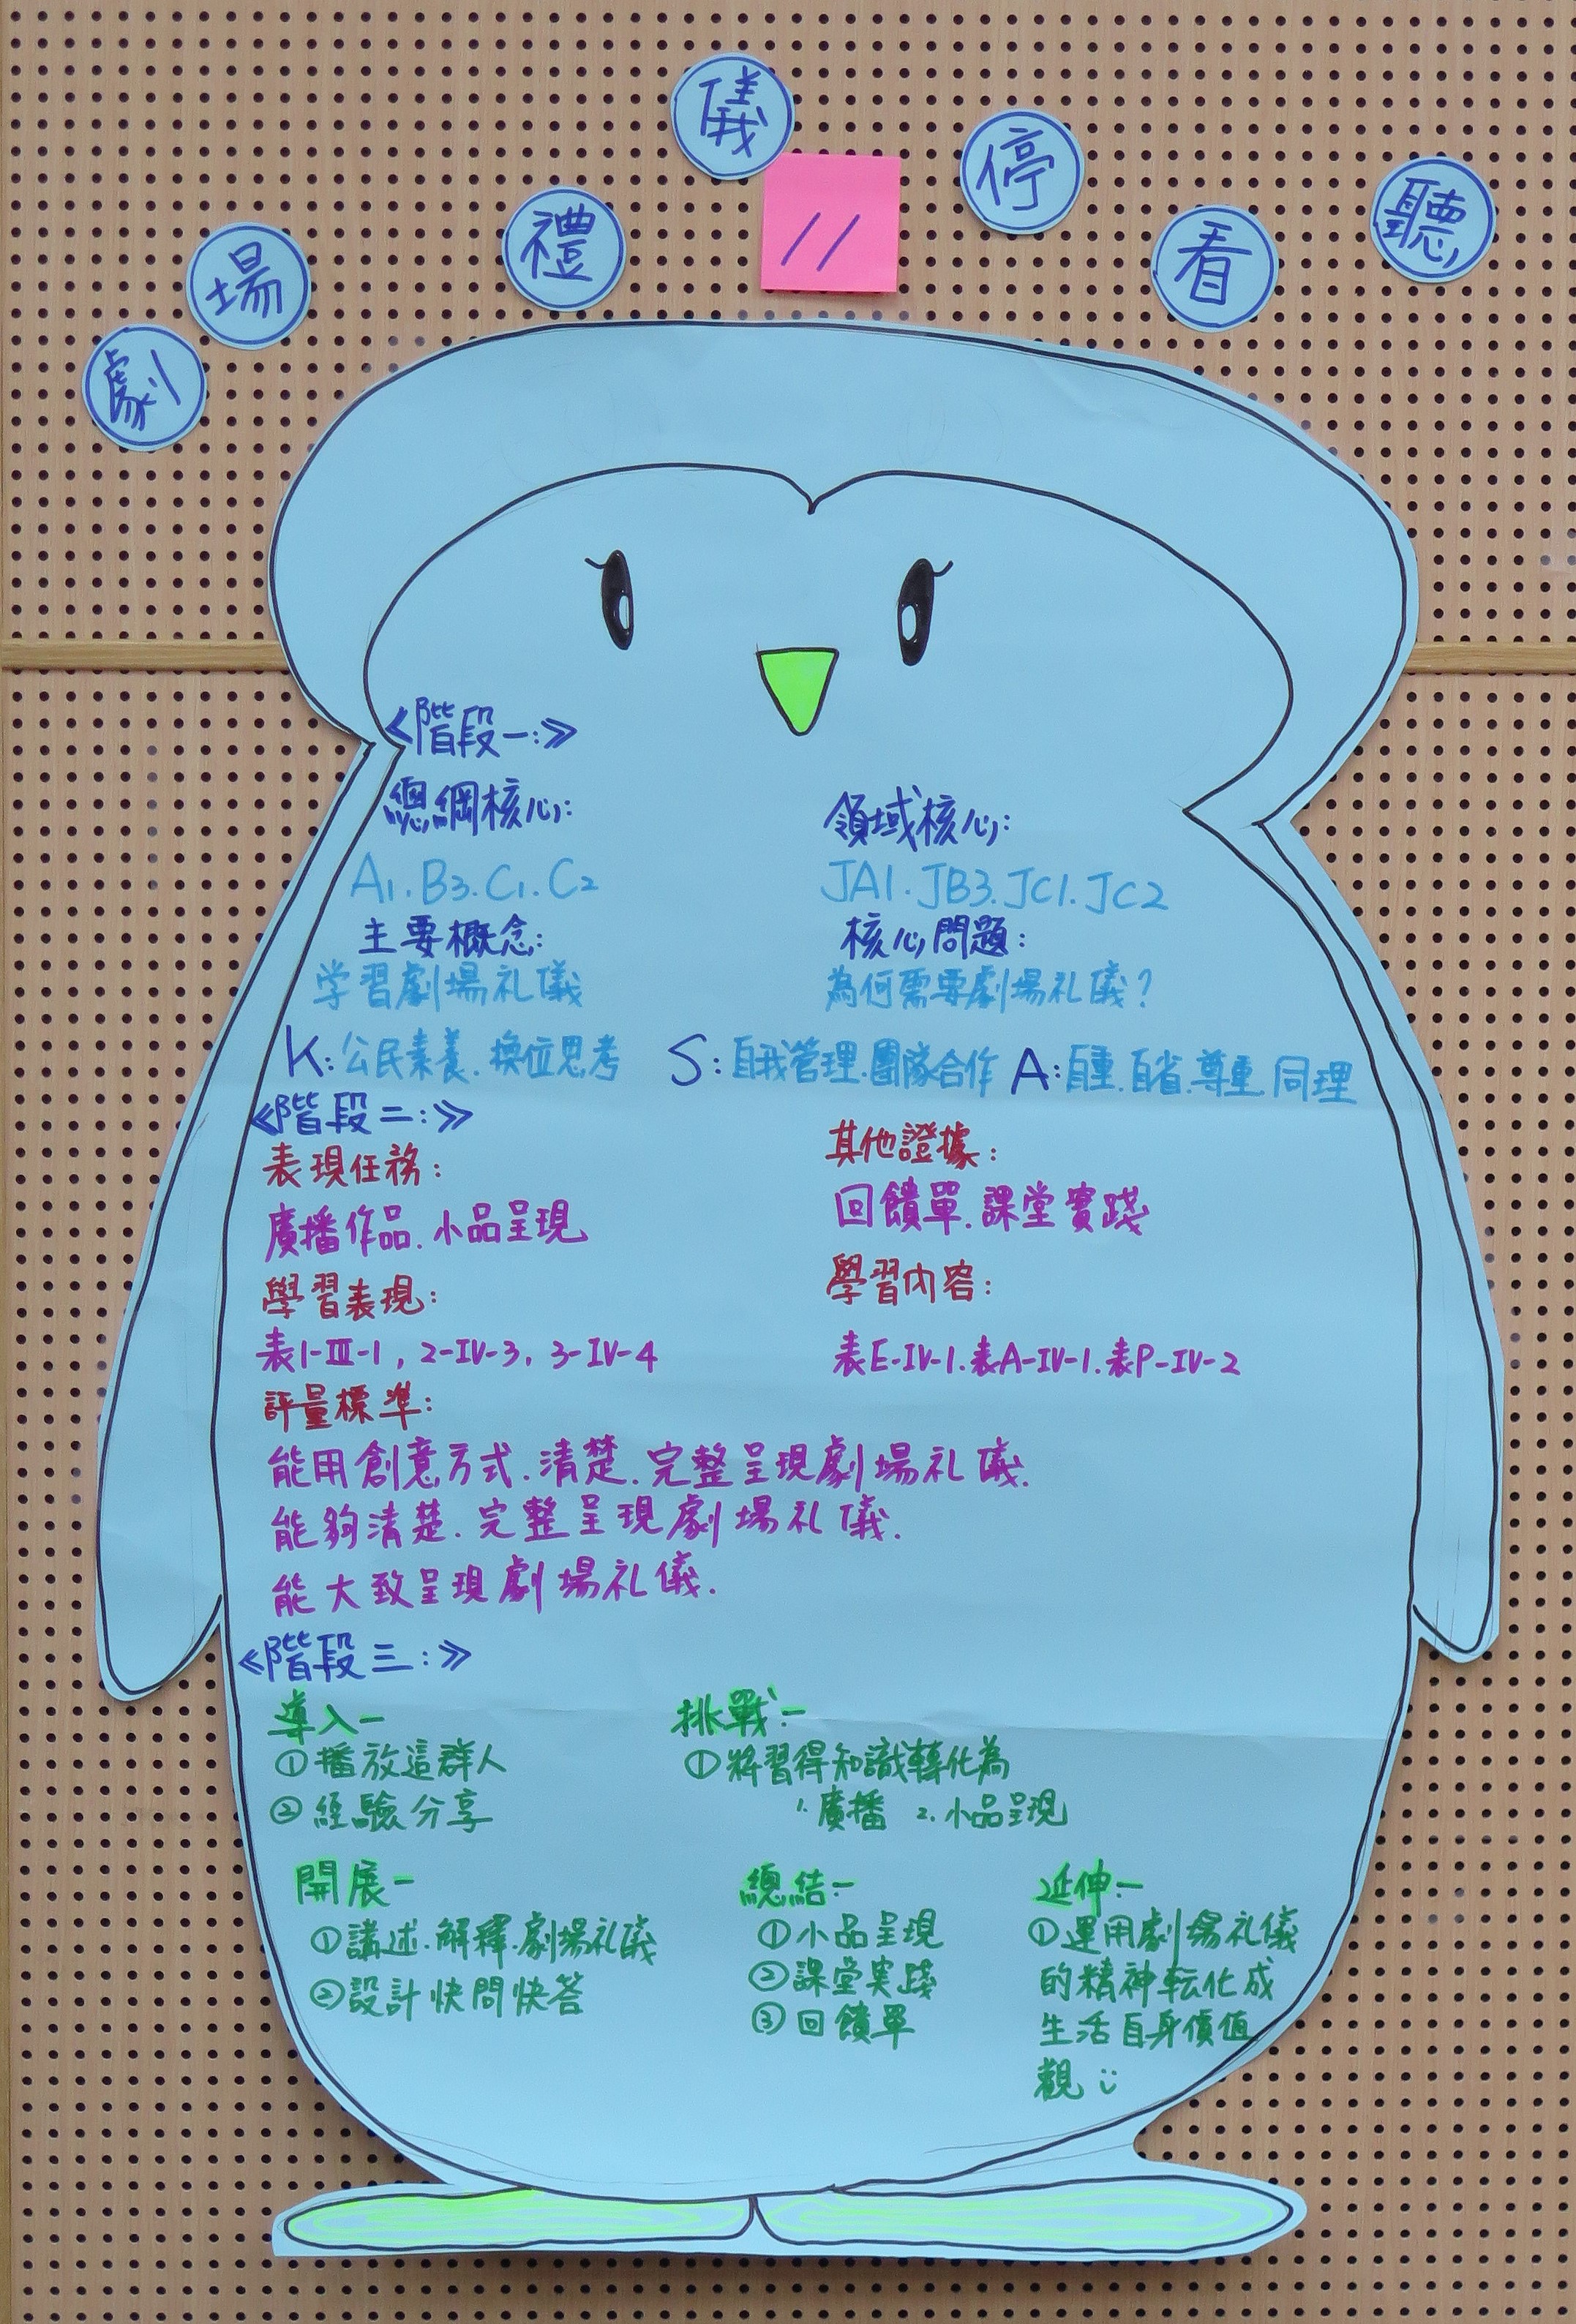 劇場禮儀停看聽
11
《階段一:》
總綱核心:
領域核心:
A1.B3.C1.C2
JA1.JB3.JC1.JC2
主要概念:
核心問題:
学習劇場礼儀
為何需要劇場礼儀?
K:公民素養.換位思考 S:自我管理.團隊合作 A:自重.自省.尊重.同理
《階段二:》
表現任務:
其他證據:
廣播作品.小品呈現
回饋單.課堂實踐
學習表現:
學習內容:
表1-III-1, 2-IV-3, 3-IV-4
表E-IV-1.表A-IV-1.表P-IV-2
評量標準:
能用創意方式.清楚.完整呈現劇場礼儀.
能夠清楚.完整呈現劇場礼儀.
能大致呈現劇場礼儀.
《階段三:》
導入-
①播放這群人
②経驗分享
挑戰:-
①將習得知識轉化為
1.廣播 2.小品呈現
開展-
①講述.解釋.劇場礼儀
②設計快問快答
總結:-
①小品呈現
②課堂実踐
③回饋單
延伸:-
①運用劇場礼儀
的精神転化成
生活自身價值
觀